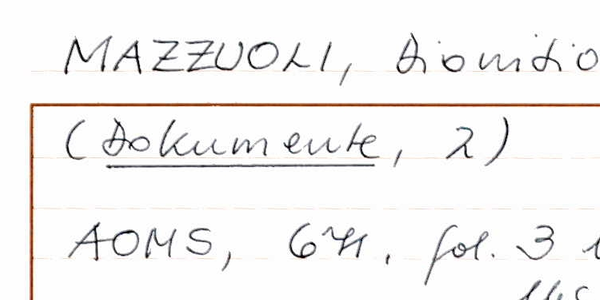 MAZZUOLI, Dionisio
(Dokumente, 2)
AOMS, fol. 3